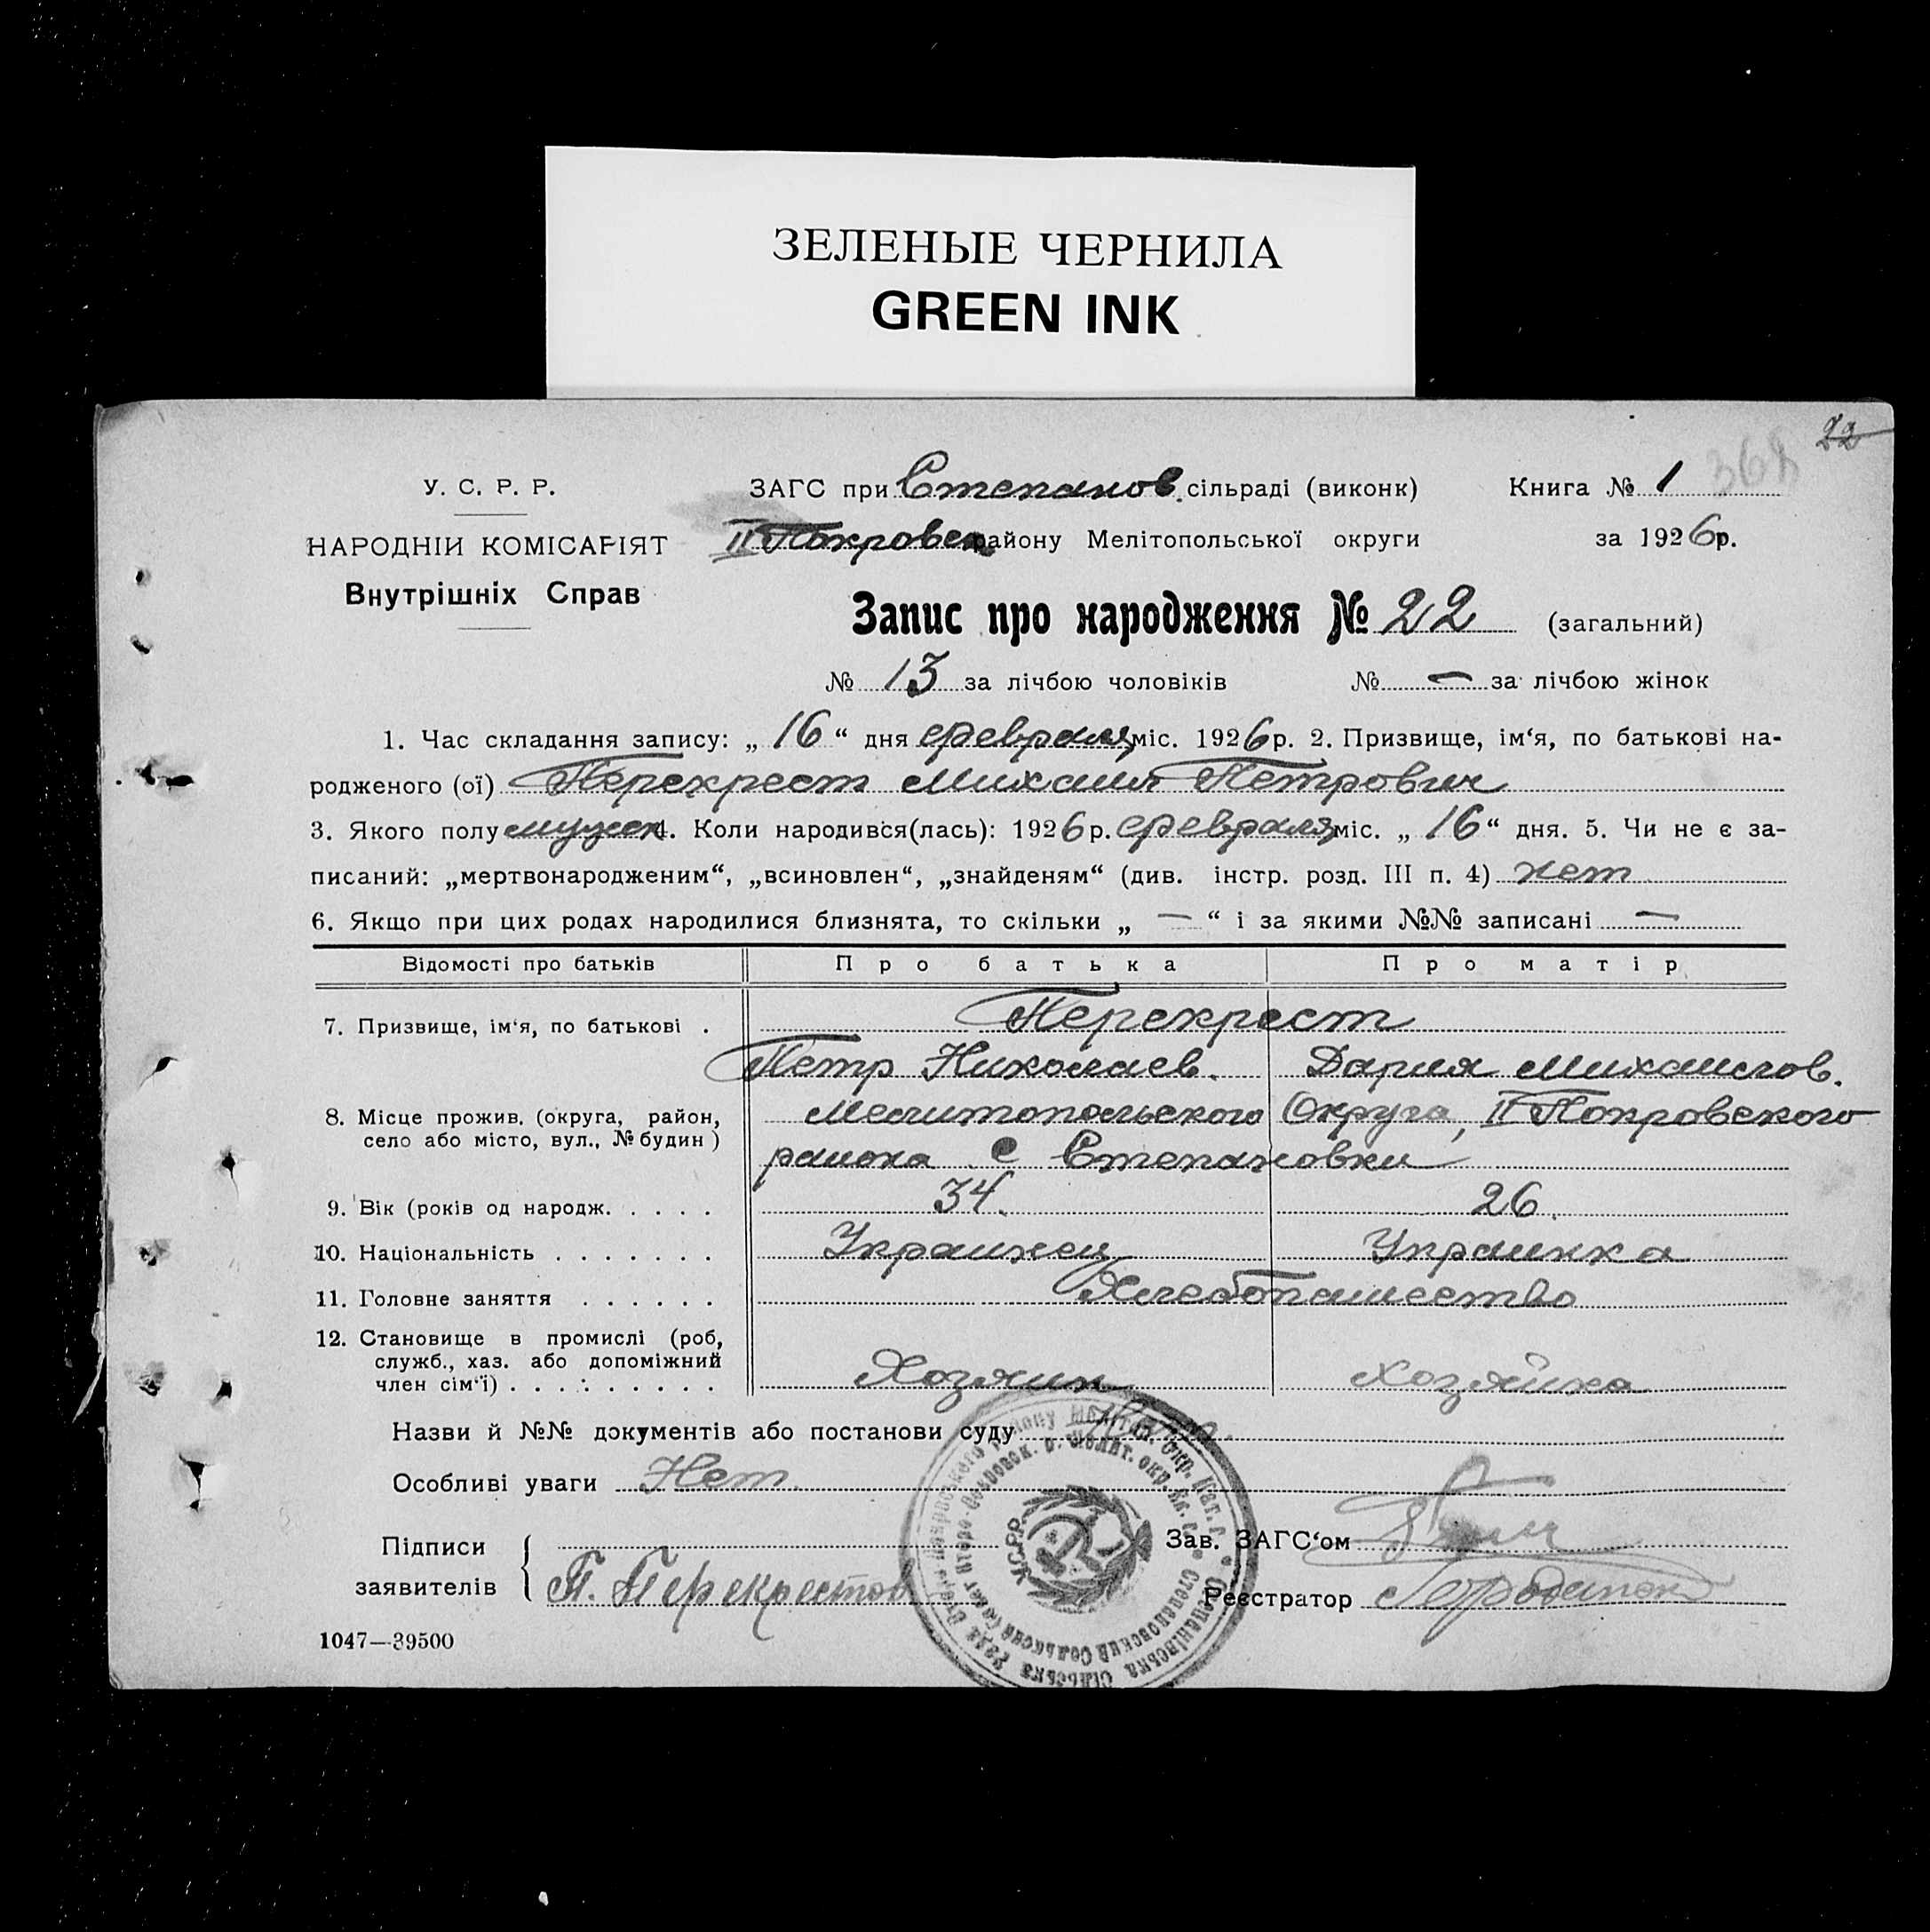 ЗЕЛЕНЫЕ ЧЕРНИЛА
GREEN INK
22
368
У. С. Р. Р.
ЗАГС при Степанов. сільраді (виконк)
Книга № 1
НАРОДНІЙ КОМІСАРІЯТ
II Покровск району Мелітопольської округи
за 1926 р.
Внутрішніх Справ
Запис про народження № 22 (загальний)
№ 13 за лічбою чоловіків № — за лічбою жінок
1. Час складання запису: „ 16 “ дня февраля міс. 1926 р. 2. Призвище, ім‘я, по батькові на-
родженого (ої) Перекрест Михаил Петрович
3. Якого полу мужск 4. Коли народився(лась): 1926 р. февраля міс. „ 16 “ дня. 5. Чи не є за-
писаний: „мертвонародженим“, „всиновлен“, „знайденям“ (див. інстр. розд. III п. 4) нет
6. Якщо при цих родах народилися близнята, то скільки „ — “ і за якими №№ записані —
Відомості про батьків Про батька Про матір
7. Призвище, ім‘я, по батькові . Перекрест
Петр Николаев. Дария Михайлов.
8. Місце прожив. (округа, район, Мелитопольского Округа, II Покровского
село або місто, вул., № будин )
района с Степановки
9. Вік (років од народж. . . . . 34. 26.
10. Національність . . . . . . . Украинец Украинка
11. Головне заняття . . . . . . Хлебопашество
12. Становище в промислі (роб,
служб., хаз. або допоміжний
член сім‘ї) . . . . . . . . . . Хозяин Хозяйка
Назви й №№ документів або постанови суду
Особливі уваги Нет.
Підписи
Зав. ЗАГС‘ом
заявителів П. Перекрестов
Реєстратор
У.С.Р.Р.
1047—39500